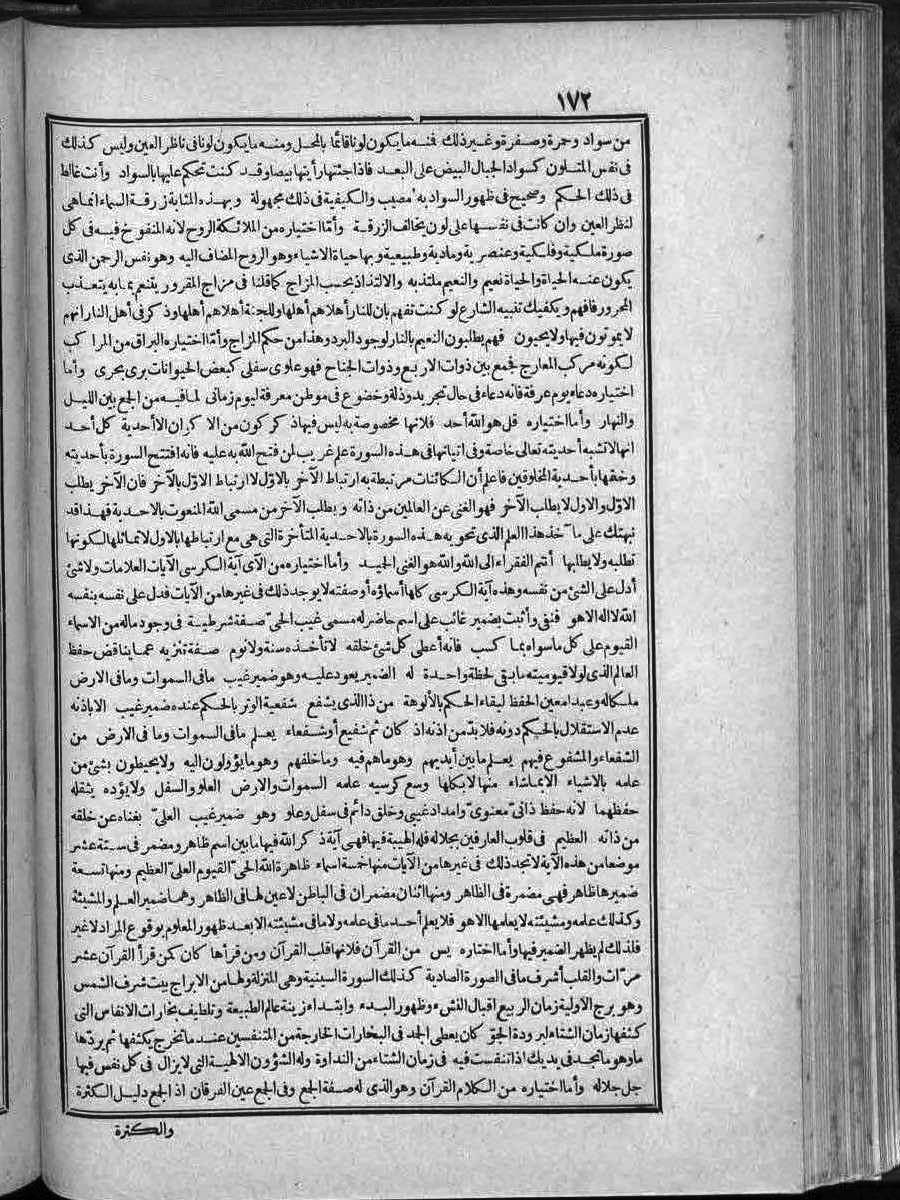 ١٧٢
من سواد وحمرة وصفرة وغير ذلك فمنه ما يكون لونا قائما بالمحل ومنه ما يكون لونا فى ناظر العين وليس كذلك
فى نفس المتلون كسواد الجبال البيض على البعد فاذا جئتها رأيتها بيضا وقد كنت تحكم عليها بالسواد وأنت غالط
فى ذلك الحكم وصحيح فى ظهور السواد به مصيب والكيفية فى ذلك مجهولة وبهذه المثابة زرقة السماء انما هى
لنظر العين وان كانت فى نفسها على لون يخالف الزرقة وأما اختياره من الملائكة الروح لانه المنفوخ فيه فى كل
صورة ملكية وفلكية وعنصرية ومادية وطبيعية وبها حياة الاشياء وهو الروح المضاف اليه وهو نفس الرحمن الذى
يكون عنه الحياة والحياة نعيم والنعيم ملتذ به والالتذاذ بحسب المزاج كما قلنا فى مزاج المقرور يتنعم بما به يتعذب
المحرور فافهم ويكفيك تنبيه الشارع لو كنت تفهم بان للنار أهلا هم أهلها وللجنة أهلا هم أهلها وذكر فى أهل النار انهم
لا يموتون فيها ولا يحيون فهم يطلبون النعيم بالنار لوجود البرد وهذا من حكم المزاج وأما اختياره البراق من المراكب
لكونه مركب المعارج فجمع بين ذوات الاربع وذوات الجناح فهو علوى سفلى كبعض الحيوانات برى بحرى وأما
اختياره دعاء يوم عرفة فانه دعاء فى حال تجريد وذلة وخضوع فى موطن معرفة ليوم زمانى لما فيه من الجمع بين الليل
والنهار وأما اختياره قل هو الله أحد فلانها مخصوصة به ليس فيها ذكر كون من الاكوان الا أحدية كل أحد
انها لا تشبه أحديته تعالى خاصة وفى اتيانها فى هذه السورة علم غريب لمن فتح الله به عليه فانه افتتح السورة بأحديته
وختمها بأحدية المخلوقين فاعلم أن الكائنات مرتبطة به ارتباط الآخر بالاول لا ارتباط الاول بالآخر فان الآخر يطلب
الاول والاول لا يطلب الآخر فهو الغنى عن العالمين من ذاته ويطلب الآخر من مسمى الله المنعوت بالاحدية فهذا قد
نبهتك على مآخذ هذا العلم الذى تحويه هذه السورة بالاحدية المتأخرة التى هى مع ارتباطها بالاول لا تماثلها لكونها
تطلبه ولا يطلبها أنتم الفقراء الى الله والله هو الغنى الحميد وأما اختياره من الآى آية الكرسى الآيات العلامات ولا شئ
أدل على الشئ من نفسه وهذه آية الكرسى كلها أسماؤه أو صفته لا يوجد ذلك فى غيرها من الآيات فدل على نفسه بنفسه
الله لا اله الا هو فنفى وأثبت بضمير غائب على اسم حاضر له مسمى غيب الحى صفة شرطية فى وجود ماله من الاسماء
القيوم على كل ما سواه بما كسب فانه أعطى كل شئ خلقه لا تأخذه سنة ولا نوم صفة تنزيه عما يناقض حفظ
العالم الذى لولا قيوميته ما بقى لحظة واحدة له الضمير يعود عليه وهو ضمير غيب مافى السموات ومافى الارض
ملكا له وعبدا معين الحفظ لبقاء الحكم بالألوهة من ذا الذى يشفع شفعية الوتر بالحكم عنده ضمير غيب الا باذنه
عدم الاستقلال بالحكم دونه فلا بد من اذنه اذ كان ثم شفيع أو شفعاء يعلم مافى السموات ومافى الارض من
الشفعاء والمشفوع فيهم يعلم ما بين أيديهم وهو ماهم فيه وما خلفهم وهو ما يؤولون اليه ولا يحيطون بشئ من
علمه بالاشياء الا بما شاء منها لا بكلها وسع كرسيه علمه السموات والارض العلو والسفل ولا يؤده يثقله
حفظهما لانه حفظ ذاتى معنوى وامداد غيبى وخلق دائم فى سفل وعلو وهو ضمير غيب العلى بغناه عن خلقه
من ذاته العظيم فى قلوب العارفين بجلاله فله الهيبة فيها فهى آية ذكر الله فيها ما بين اسم ظاهر ومضمر فى ستة عشر
موضعا من هذه الآية لا تجد ذلك فى غيرها من الآيات منها خمسة أسماء ظاهرة الله الحى القيوم العلى العظيم ومنها تسعة
ضميرها ظاهر فهى مضمرة فى الظاهر ومنها اثنان مضمران فى الباطن لا عين لها فى الظاهر وهما ضمير العلم والمشيئة
وكذلك علمه ومشيئته لا يعلمها الا هو فلا يعلم أحد مافى علمه ولا مافى مشيئته الا بعد ظهور المعلوم بوقوع المراد لا غير
فلذلك لم يظهر الضمير فيها وأما اختياره يس من القرآن فلانها قلب القرآن ومن قرأها كان كمن قرأ القرآن عشر
مرات والقلب أشرف مافى الصورة الصادية كذلك السورة السينية وهى المنزلة ولها من الابراج بيت شرف الشمس
وهو برج الاولية زمان الربيع اقبال النشء وظهور البدء وابتداء زينة عالم الطبيعة وتلطيف بخارات الانفاس التى
كثفها زمان الشتاء لبرودة الجو كان يعطى الجمد فى البخارات الخارجة من المتنفسين عند ما تخرج يكثفها ثم يردها
ماء وهو ما تجد فى يديك اذا تنفست فيه فى زمان الشتاء من النداوة وله الشؤون الالهية التى لا يزال فى كل نفس فيها
جل جلاله وأما اختياره من الكلام القرآن وهو الذى له صفة الجمع وفى الجمع عين الفرقان اذ الجمع دليل الكثرة
والكثرة